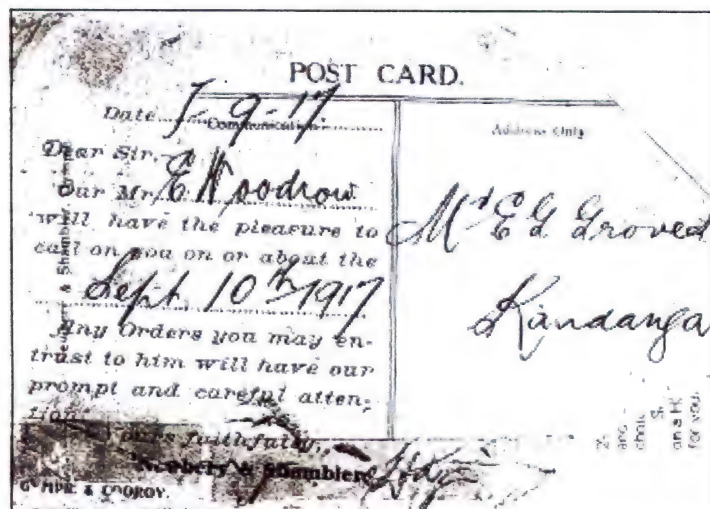 POST CARD.
Date 5-9-17
Communication
Dear Sir,
Our Mr. E Woodrow
will have the pleasure to
call on you on or about the
Sept. 10th 1917
Any Orders you may en-
trust to him will have our
prompt and careful atten-
tion.
Yours faithfully,
Newbery & Shambler
GYMPIE & COOROY.
Address Only
Mr E G Groves
Kandanga
for you.